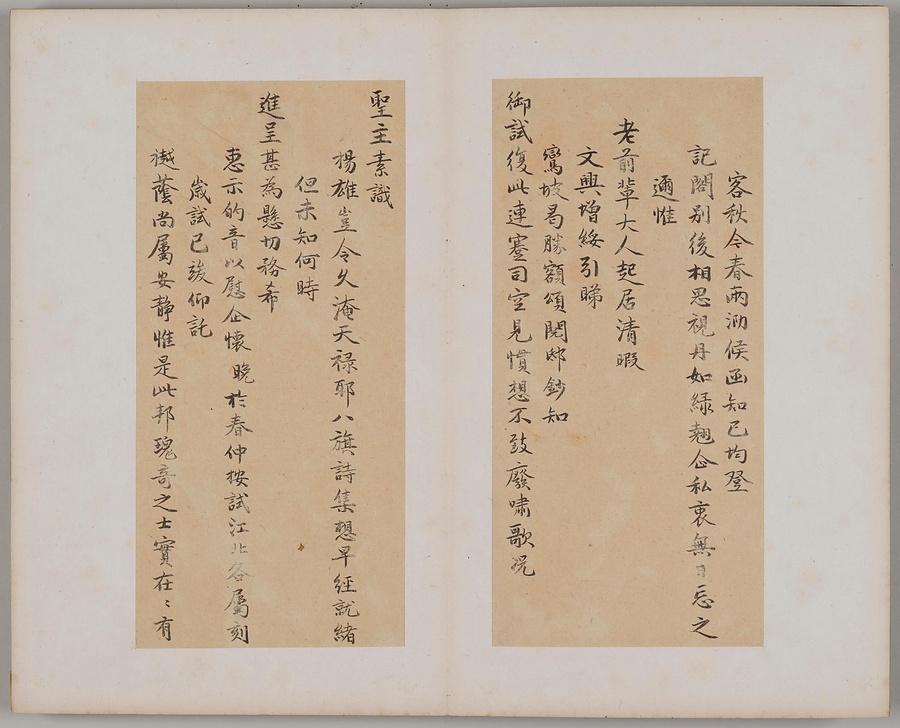 客秋令春兩泐候函知已均登
記閣別後相思視丹如緑翹企私衷無日忘之
邇惟
老前輩大人起居清暇
文興增綏引睇
鸞坡曷勝額頌閱邸鈔知
御試復此連蹇司空見慣想不致廢嘯歌況
聖主素識
揚雄豈令久淹天禄耶八旗詩集想早經就緒
但未知何時
進呈甚為懸切務希
惠示的音以慰企懷晚於春仲按試江北各屬刻
歲試已竣仰託
樾蔭尚屬安静惟是此邦瑰奇之士實在〻有